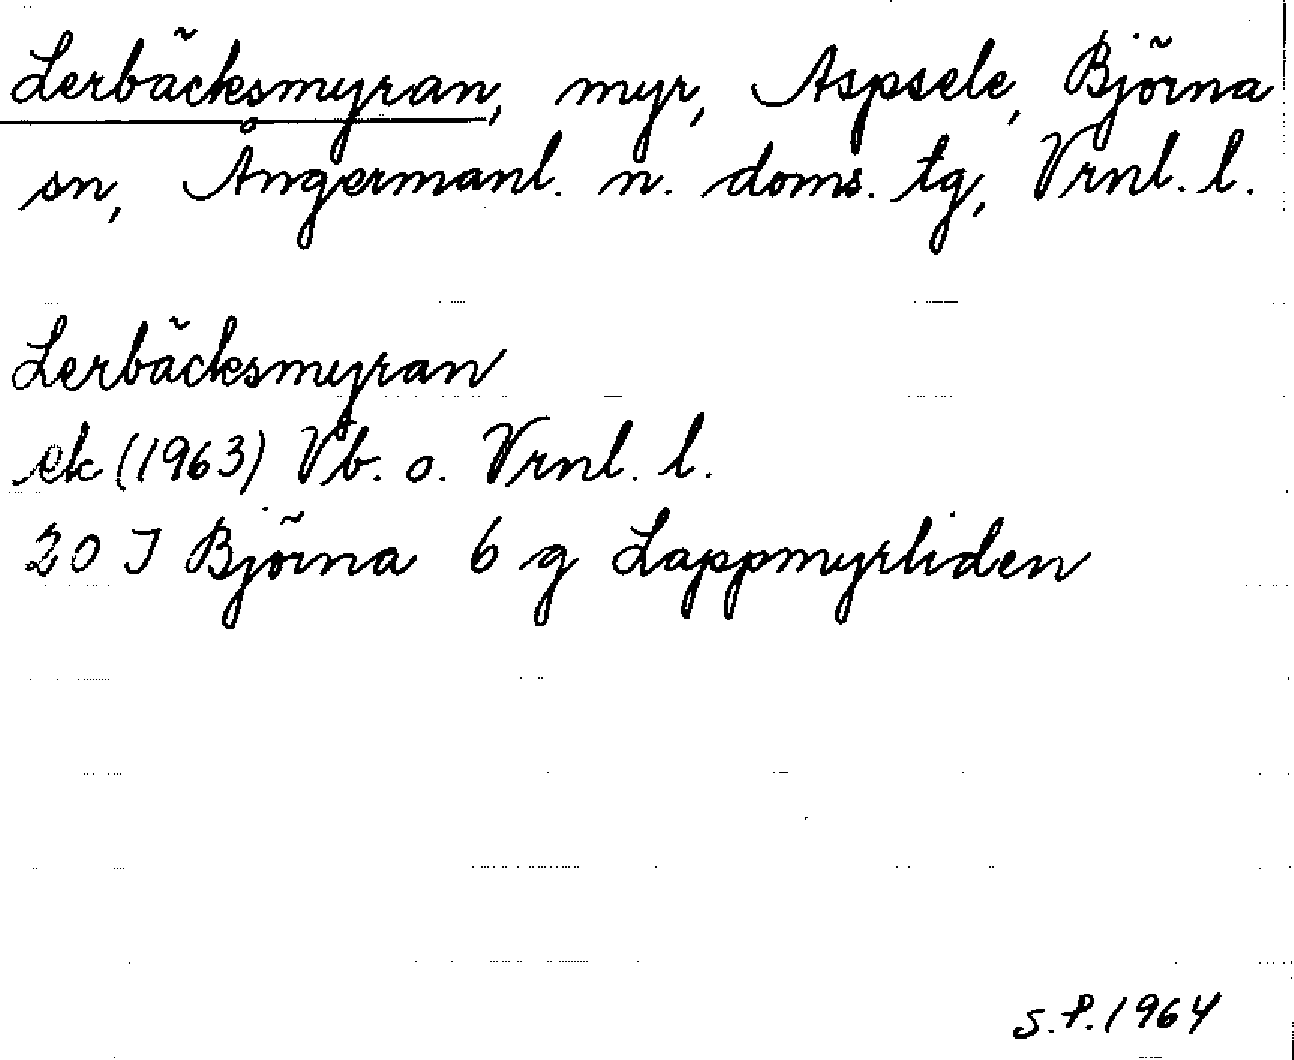 Lerbäcksmyran, myr, Aspsele, Björna
sn, Ångermanl. n. doms. tg, Vrnl. l.
Lerbäcksmyran
ek (1963) Vb. o. Vrnl. l.
20 I Björna 6 g Lappmyrliden
S.P. 1964